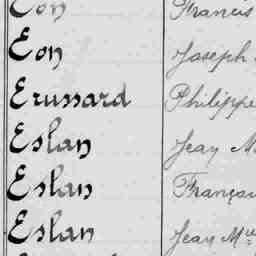 Eon Francis
Eon Joseph
Erussard Philippe
Eslan Jean M
Eslan Françoi
Eslan Jean Mie